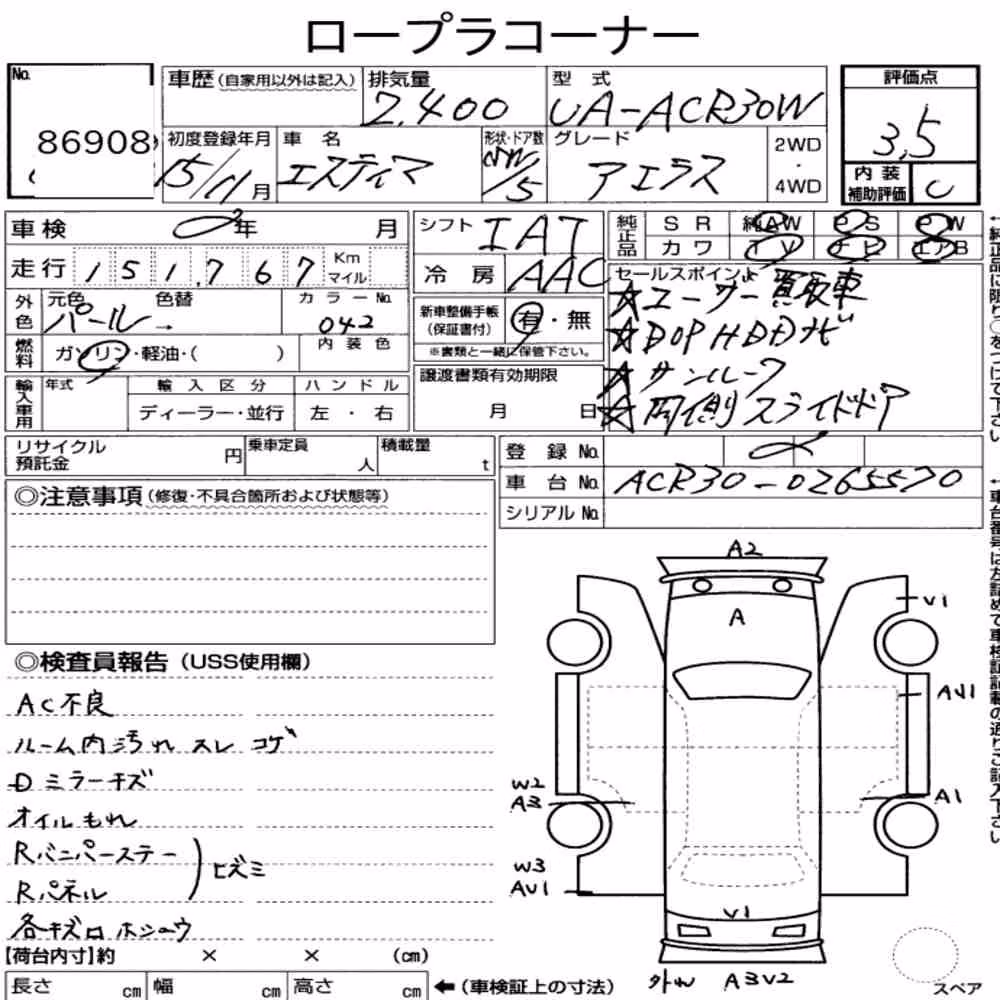 ロープラコーナー
No. 86908
車歴(自家用以外は記入) 排気量 2,400 型 式 UA-ACR30W
評価点 3.5
初度登録年月 15/11月 車 名 エスティマ 形状・ドア数 /5 グレード アエラス 2WD・4WD
内装補助評価 C
車検 年 月
シフト IAT
純正品 S R 純AW P S P W
カワ T V ナビ エアB
走行 151,767 Km マイル
冷 房 AAC
セールスポイント
☆ユーザー買取車
☆DOPHDDナビ
☆サンルーフ
☆両側スライドドア
外色 元色 パール→ 色替 カラーNo. 042
新車整備手帳(保証書付) 有・無
※書類と一緒に保管下さい。
燃料 ガソリン・軽油・( ) 内装色
譲渡書類有効期限
月 日
輸入車用 年式 輸入区分 ハンドル
ディーラー・並行 左・右
リサイクル預託金 円 乗車定員 人 積載量 t
登 録 No.
車 台 No. ACR30-0265570
シリアル No.
◎注意事項(修復・不具合箇所および状態等)
◎検査員報告(USS使用欄)
AC不良
ルーム内汚れ スレ コゲ
Dミラーキズ
オイルもれ
Rバンパーステー
Rパネル
ヒズミ
各キズロホシュウ
A2
A
V1
AU1
W2
A3
A1
W3
AU1
V1
外ル A3V2
スペア
【荷台内寸】約 × × (cm)
長さ cm 幅 cm 高さ cm ←(車検証上の寸法)
↑純正品に限り○をつけて下さい
↑車台番号は左詰めで車検証記載の通りご記入下さい